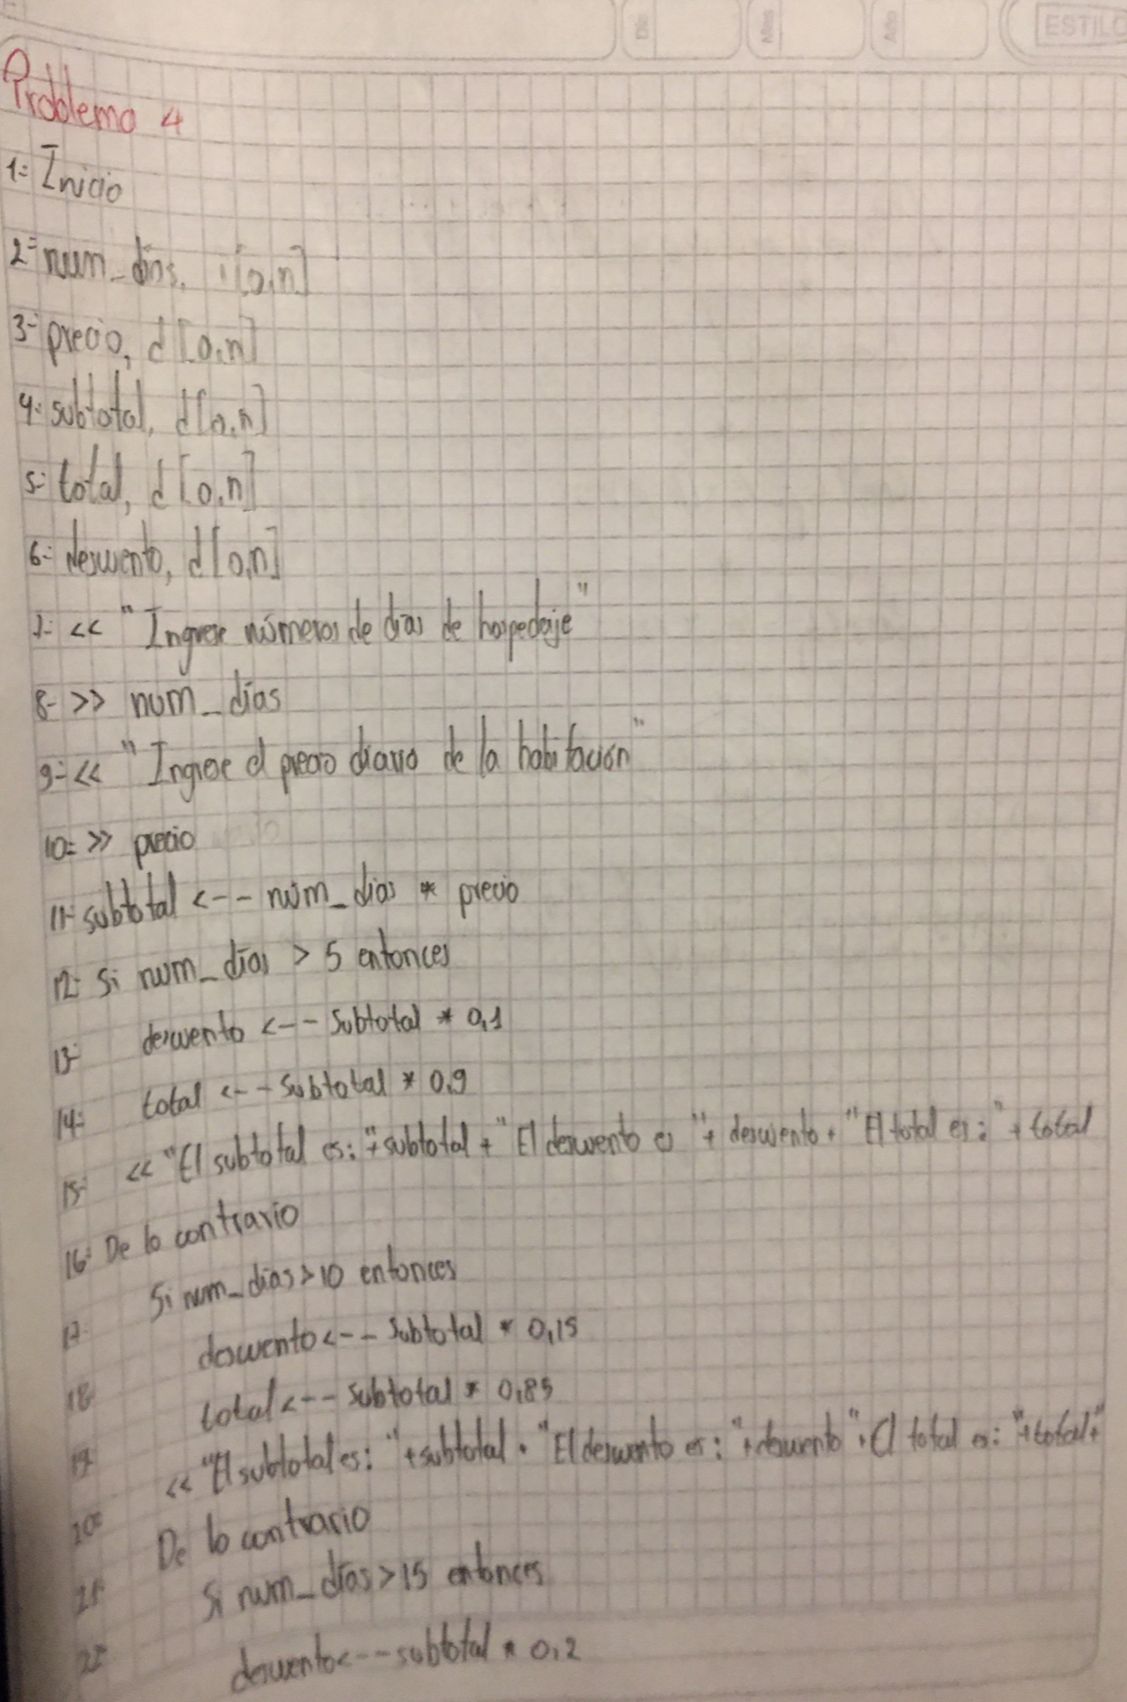 Día
Mes
Año
ESTILO
Problema 4
1- Inicio
2- num_dias, i[0,n]
3- precio, d[0,n]
4- subtotal, d[0,n]
5- total, d[0,n]
6- descuento, d[0,n]
7- << "Ingrese números de días de hospedaje"
8- >> num_días
9- << "Ingrese el precio diario de la habitación"
10- >> precio
11- subtotal <-- num_dias * precio
12- Si num_días > 5 entonces
13- descuento <-- Subtotal * 0,1
14- total <-- Subtotal * 0.9
15- << "El subtotal es: "+subtotal + "El descuento es "+ descuento + "El total es: " + total
16- De lo contrario
17- Si num_días > 10 entonces
18- descuento <-- Subtotal * 0,15
19- total <-- subtotal * 0,85
20- << "El subtotal es: "+subtotal + "El descuento es: "+descuento "+El total es: "+total+"
21- De lo contrario
22- Si num_días > 15 entonces
descuento <-- subtotal * 0,2